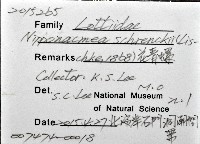 2015265
Family Lottiidae
Nipponacmea schrenckii (Lis-
Remarks chke, 1868) 花青螺
Collector K. S. Lee
Det. S.C. Lee National Museum M.O
of Natural Science n.1
Date 2015.4.27 北海岸石門洞
007474-00018